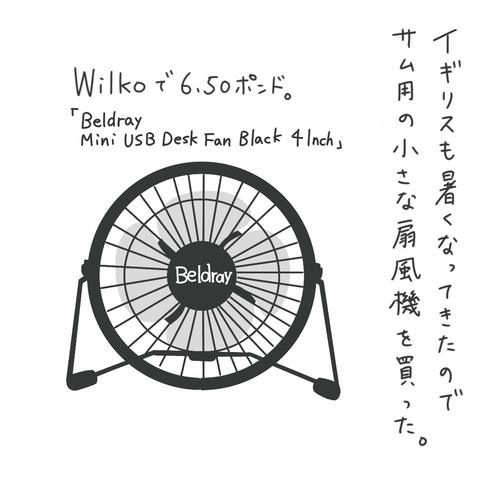 イギリスも暑くなってきたので
サム用の小さな扇風機を買った。
Wilkoで6.50ポンド。
「Beldray
Mini USB Desk Fan Black 4Inch」
Beldray